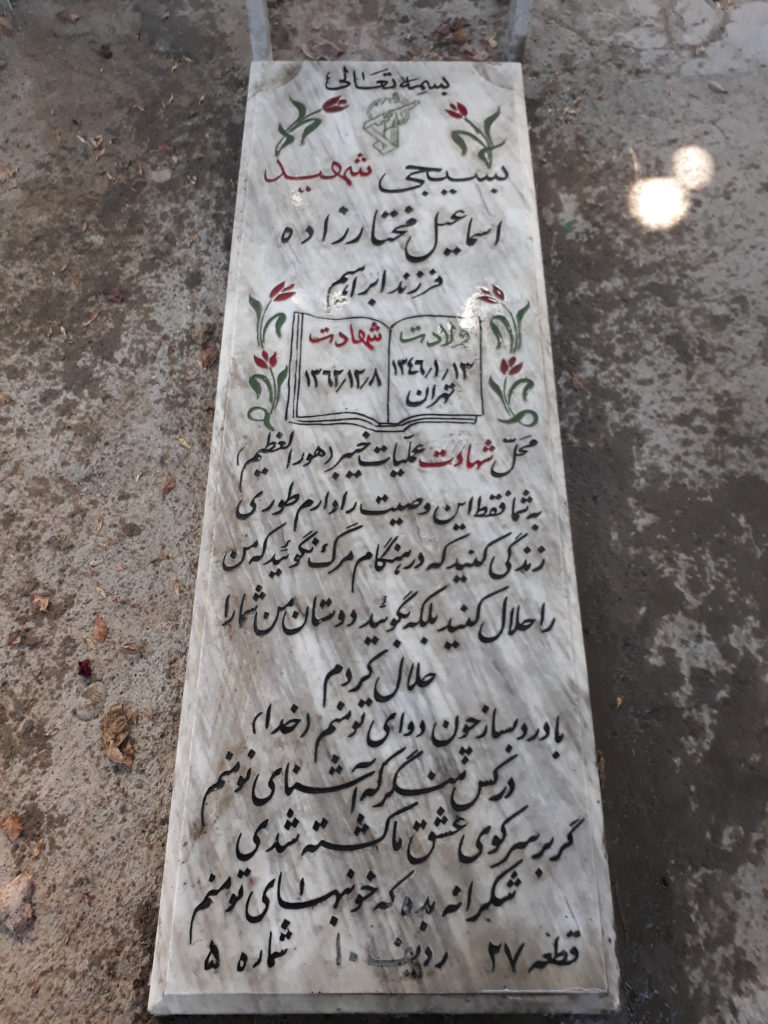 بسمه تعالی
بسیجی شهید
اسماعیل مختارزاده
فرزند ابراهیم
ولادت
۱۳۴۶/۱/۱۳
تهران
شهادت
۱۳۶۲/۱۲/۸
محل شهادت عملیات خیبر (هورالغظیم)
به شما فقط این وصیت را دارم طوری
زندگی کنید که در هنگام مرگ نگوئید که من
را حلال کنید بلکه بگوئید دوستان من شما را
حلال کردم
با درد بساز چون دوای تو منم (خدا)
در کس منگر که آشنای تو منم
گر بر سر کوی عشق ما کشته شدی
شکرانه بده که خونبهای تو منم
قطعه ۲۷ ردیف ۱۰ شماره ۵